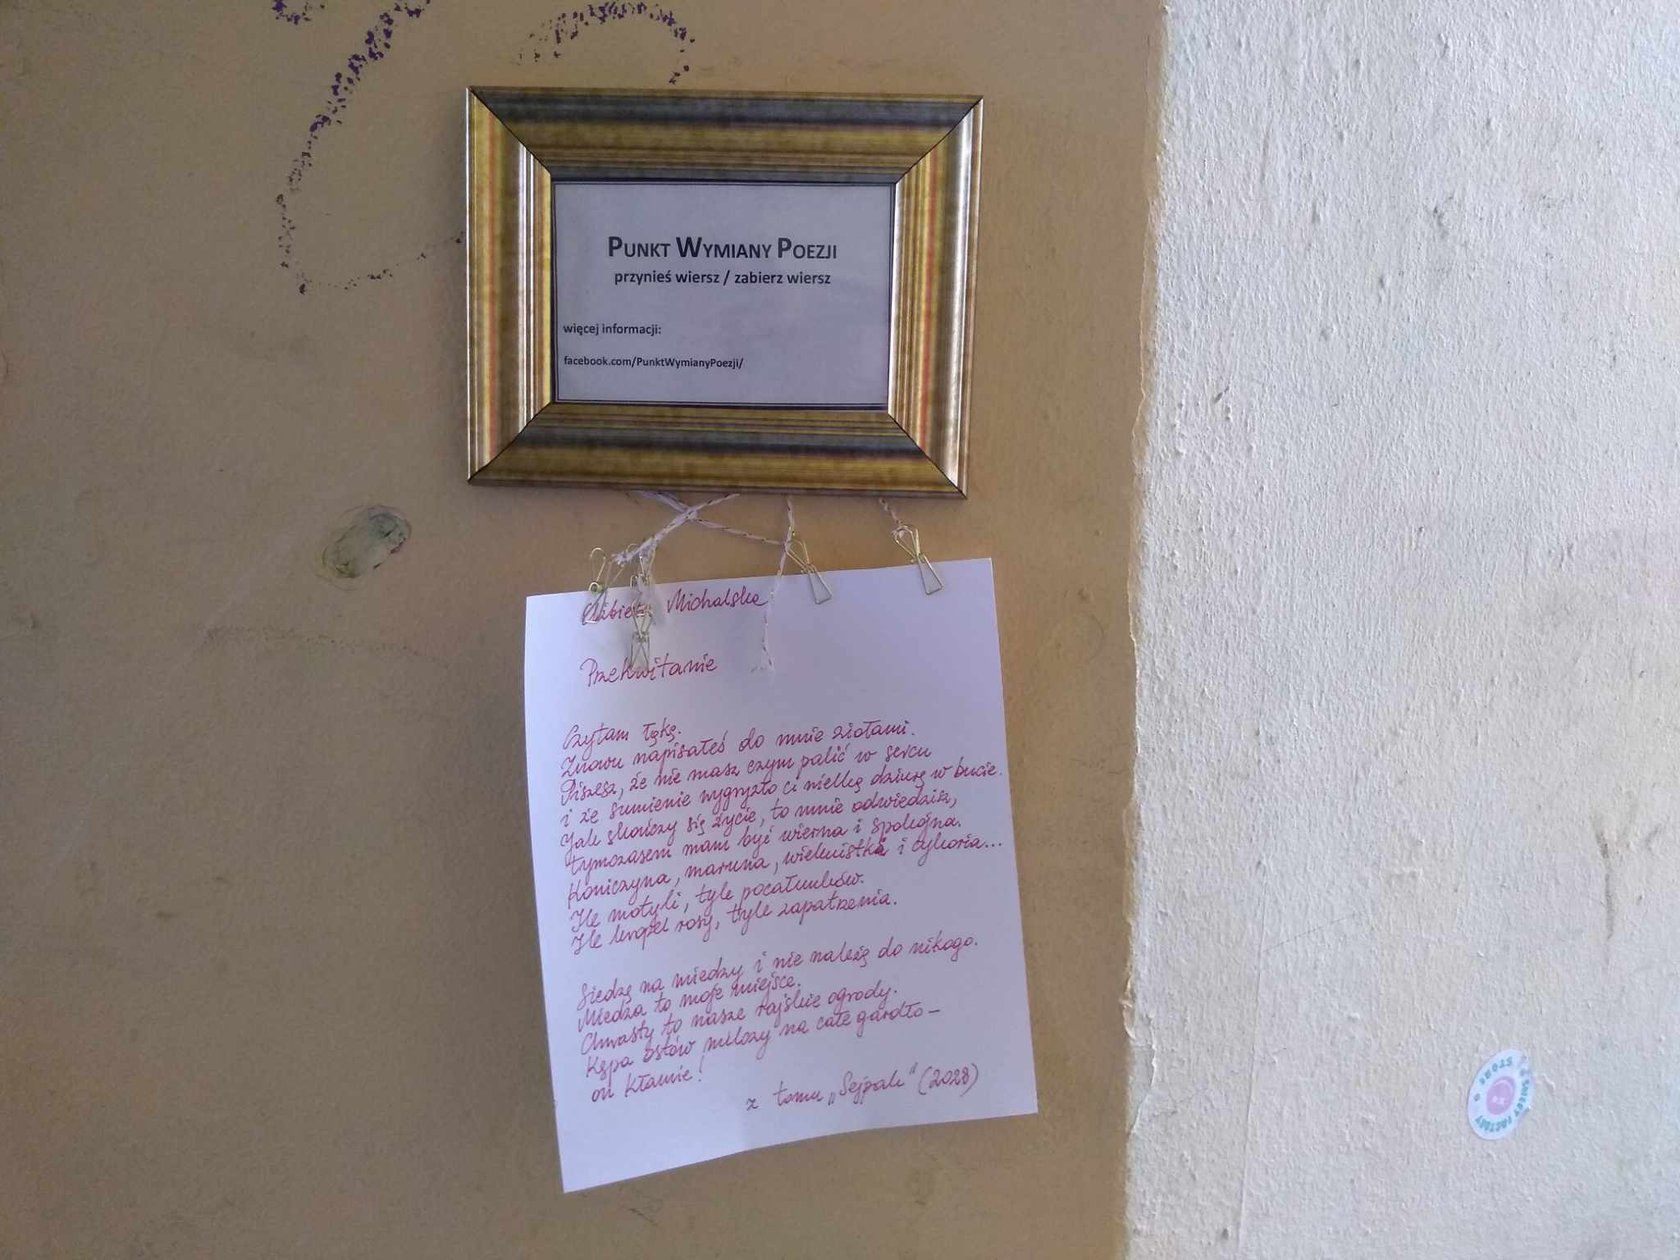 PUNKT WYMIANY POEZJI
przynieś wiersz / zabierz wiersz
więcej informacji:
facebook.com/PunktWymianyPoezji/
Elżbieta Michalska
Przekwitanie
Czytam łąkę.
Znowu napisałeś do mnie ziołami.
Piszesz, że nie masz czym palić w sercu
i że sumienie wygryzło ci wielką dziurę w bucie.
Jak skończy się życie, to mnie odwiedzisz,
tymczasem mam być wierna i spokojna.
Koniczyna, maruna, wiekuistka i cykoria...
Ile motyli, tyle pocałunków.
Ile kropel rosy, tyle zapatrzenia.
Siedzę na miedzy i nie należę do nikogo.
Miedza to moje miejsce.
Chwasty to nasze rajskie ogrody.
Kępa ostów milczy na całe gardło –
on kłamie!
z tomu „Sejpak" (2028)